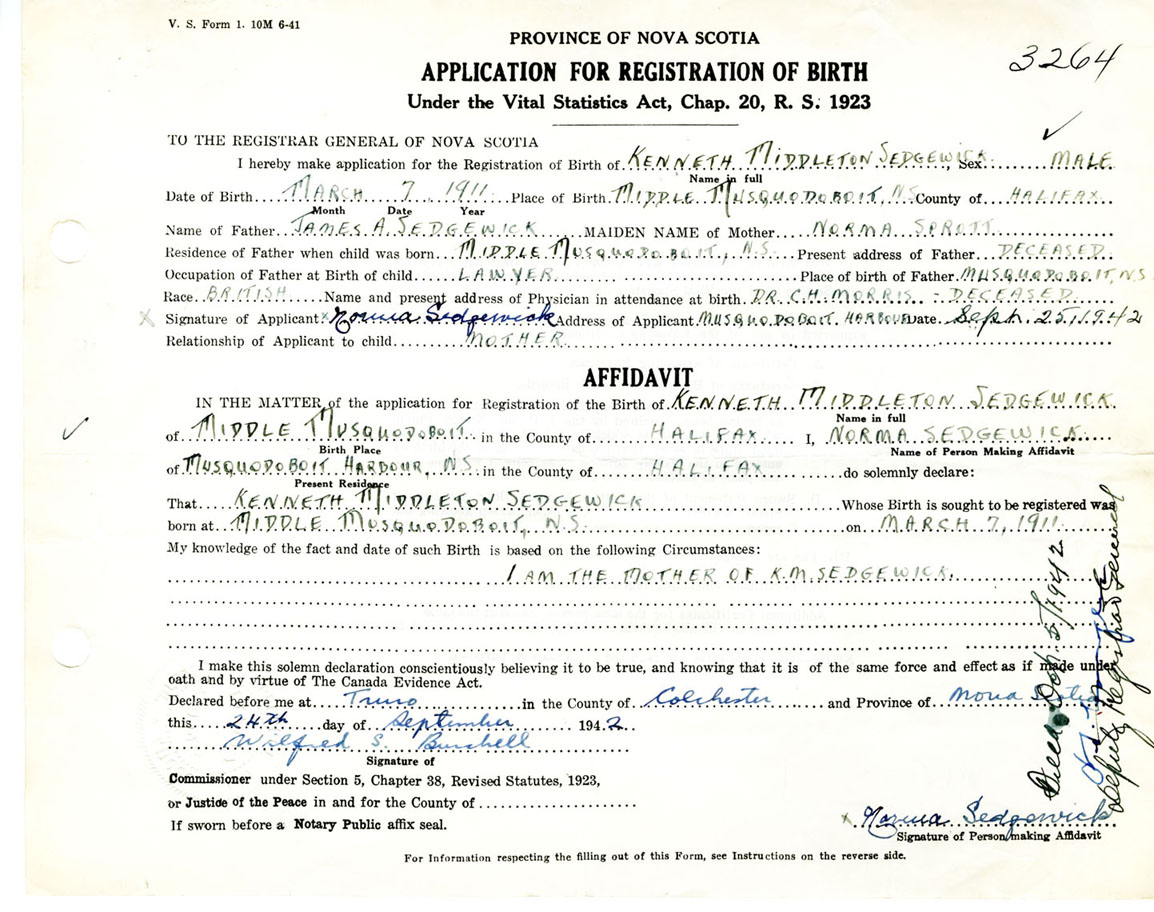 V. S. Form 1. 10M 6-41
PROVINCE OF NOVA SCOTIA
3264
APPLICATION FOR REGISTRATION OF BIRTH
Under the Vital Statistics Act, Chap. 20, R. S. 1923
TO THE REGISTRAR GENERAL OF NOVA SCOTIA
I hereby make application for the Registration of Birth of KENNETH MIDDLETON SEDGEWICK, Sex MALE
Name in full
Date of Birth MARCH 7 1911 Place of Birth MIDDLE MUSQUODOBOIT, N.S. County of HALIFAX
Month Date Year
Name of Father JAMES A. SEDGEWICK MAIDEN NAME of Mother NORMA SPROTT
Residence of Father when child was born MIDDLE MUSQUODOBOIT, N.S. Present address of Father DECEASED
Occupation of Father at Birth of child LAWYER Place of birth of Father MUSQUODOBOIT, N.S
Race BRITISH Name and present address of Physician in attendance at birth DR. C.H. MORRIS - DECEASED
x Signature of Applicant x Norma Sedgewick Address of Applicant MUSQUODOBOIT HARBOUR Date Sept. 25, 1942
Relationship of Applicant to child MOTHER
AFFIDAVIT
IN THE MATTER of the application for Registration of the Birth of KENNETH MIDDLETON SEDGEWICK
Name in full
of MIDDLE MUSQUODOBOIT in the County of HALIFAX I, NORMA SEDGEWICK
Birth Place Name of Person Making Affidavit
of MUSQUODOBOIT HARBOUR, N.S. in the County of HALIFAX do solemnly declare:
Present Residence
That KENNETH MIDDLETON SEDGEWICK Whose Birth is sought to be registered was
born at MIDDLE MUSQUODOBOIT, N.S. on MARCH 7, 1911
My knowledge of the fact and date of such Birth is based on the following Circumstances:
I AM THE MOTHER OF K.M. SEDGEWICK.
I make this solemn declaration conscientiously believing it to be true, and knowing that it is of the same force and effect as if made under
oath and by virtue of The Canada Evidence Act.
Declared before me at Truro in the County of Colchester and Province of Nova Scotia
this 24th day of September 1942.
Wilfred S. Burchell
Signature of
Commissioner under Section 5, Chapter 38, Revised Statutes, 1923,
or Justice of the Peace in and for the County of
If sworn before a Notary Public affix seal.
x Norma Sedgewick
Signature of Person making Affidavit
For Information respecting the filling out of this Form, see Instructions on the reverse side.
Filed Oct. 5/1942
Deputy Registrar General